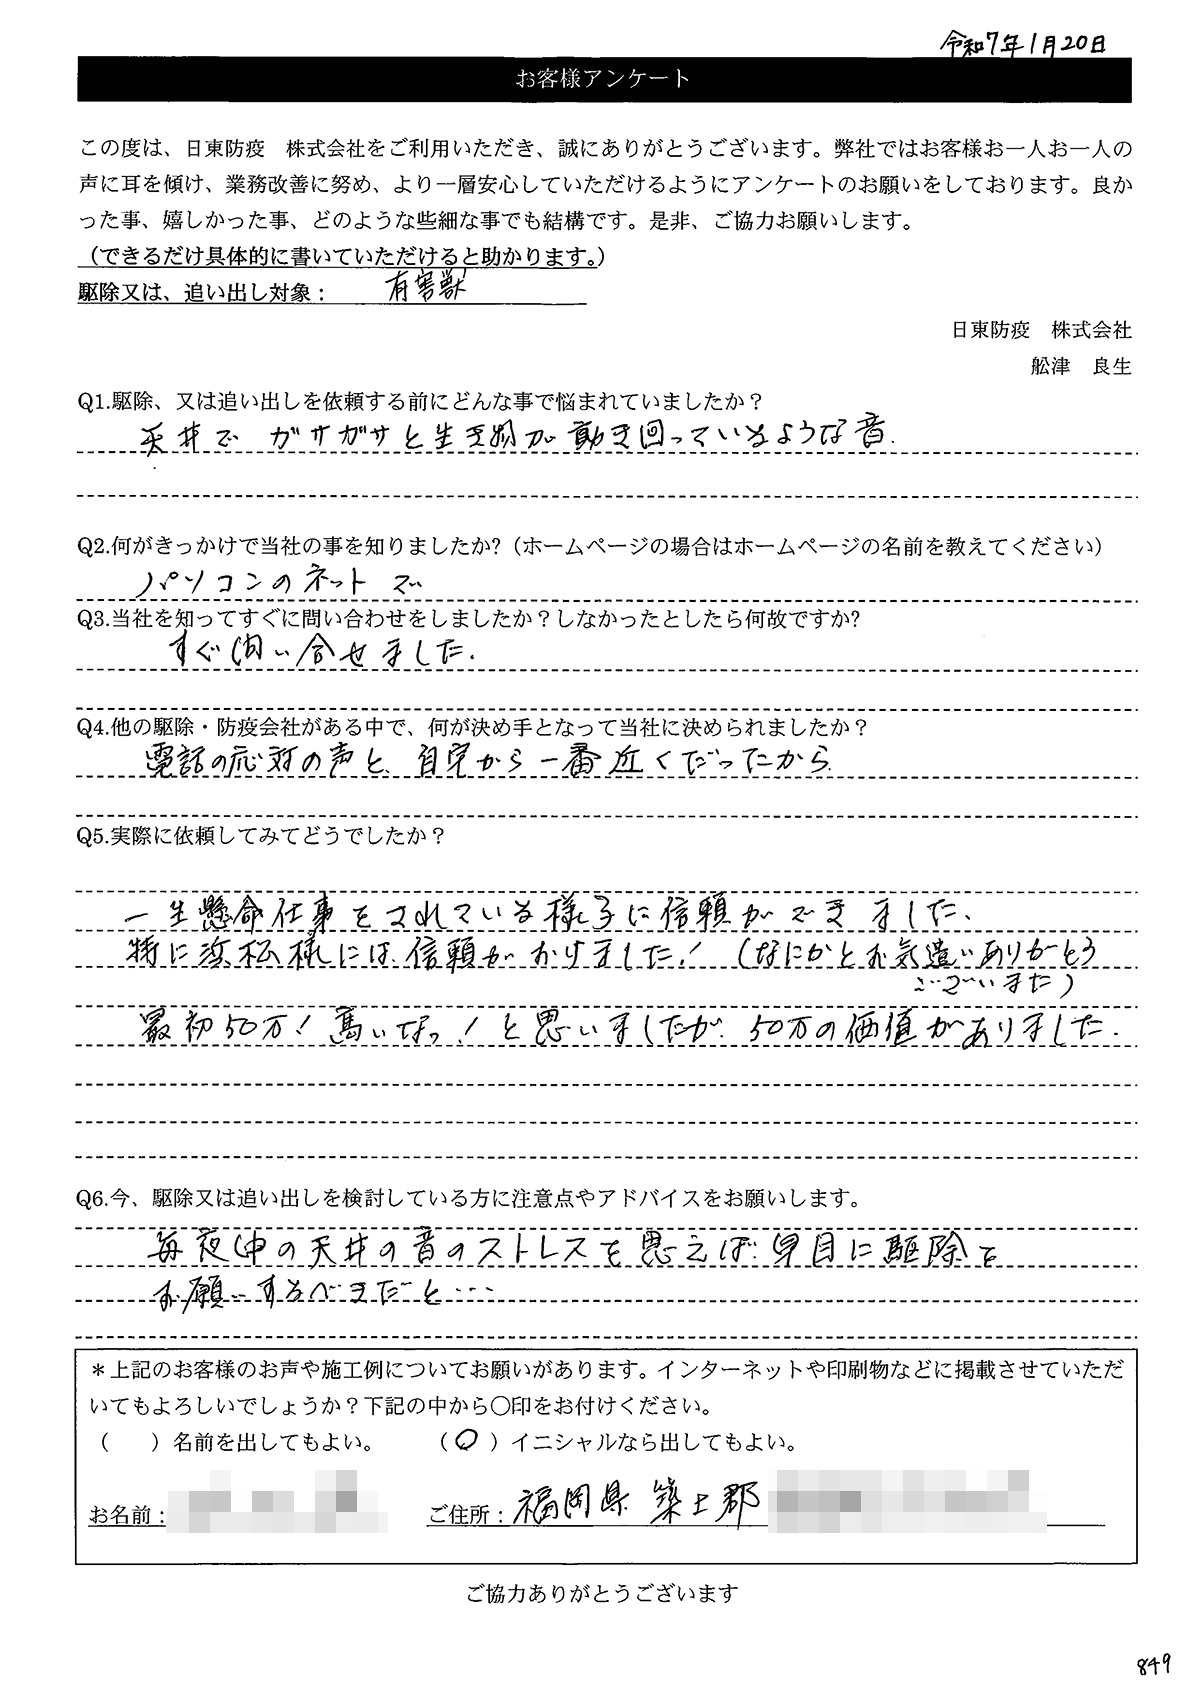 令和7年1月20日
お客様アンケート
この度は、日東防疫　株式会社をご利用いただき、誠にありがとうございます。弊社ではお客様お一人お一人の
声に耳を傾け、業務改善に努め、より一層安心していただけるようにアンケートのお願いをしております。良か
った事、嬉しかった事、どのような些細な事でも結構です。是非、ご協力お願いします。
（できるだけ具体的に書いていただけると助かります。）
駆除又は、追い出し対象： 有害獣
日東防疫　株式会社
舩津　良生
Q1.駆除、又は追い出しを依頼する前にどんな事で悩まれていましたか？
天井で ガサガサと生き物が動き回っているような音.
Q2.何がきっかけで当社の事を知りましたか?（ホームページの場合はホームページの名前を教えてください）
パソコンのネットで
Q3.当社を知ってすぐに問い合わせをしましたか？しなかったとしたら何故ですか?
すぐ問い合せました.
Q4.他の駆除・防疫会社がある中で、何が決め手となって当社に決められましたか？
電話の応対の声と、自宅から一番近くだったから.
Q5.実際に依頼してみてどうでしたか？
一生懸命仕事をされている様子に信頼ができました、
特に浜松様には、信頼がおけました！（なにかとお気遣いありがとう
ございまた）
最初50万！高いなっ！と思いましたが、50万の価値がありました.
Q6.今、駆除又は追い出しを検討している方に注意点やアドバイスをお願いします。
毎夜中の天井の音のストレスを思えば、早目に駆除を
お願いするべきだと…
＊上記のお客様のお声や施工例についてお願いがあります。インターネットや印刷物などに掲載させていただ
いてもよろしいでしょうか？下記の中から〇印をお付けください。
（　　）名前を出してもよい。　（〇）イニシャルなら出してもよい。
お名前：　ご住所：福岡県 築上郡
ご協力ありがとうございます
849